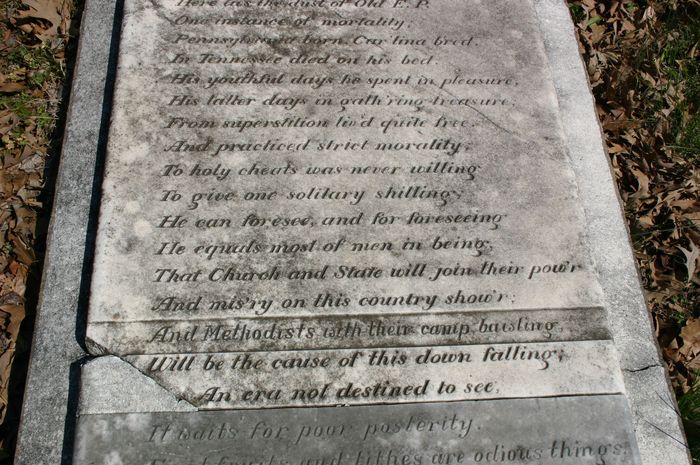 Here lies the dust of Old E.P.
One instance of mortality;
Pennsylvania born. Car'lina bred.
In Tennessee died on his bed
His youthful days he spent in pleasure,
His latter days in gath'ring treasure;
From superstition liv'd quite free
And practiced strict morality;
To holy cheats was never willing
To give one solitary shilling;
He can foresee, and for foreseeing
He equals most of men in being,
That Church and State will join their pow'r
And mis'ry on this country show'r;
And Methodists with their camp bawling,
Will be the cause of this down falling;
An era not destined to see,
It waits for poor posterity.
and tithes are odious things